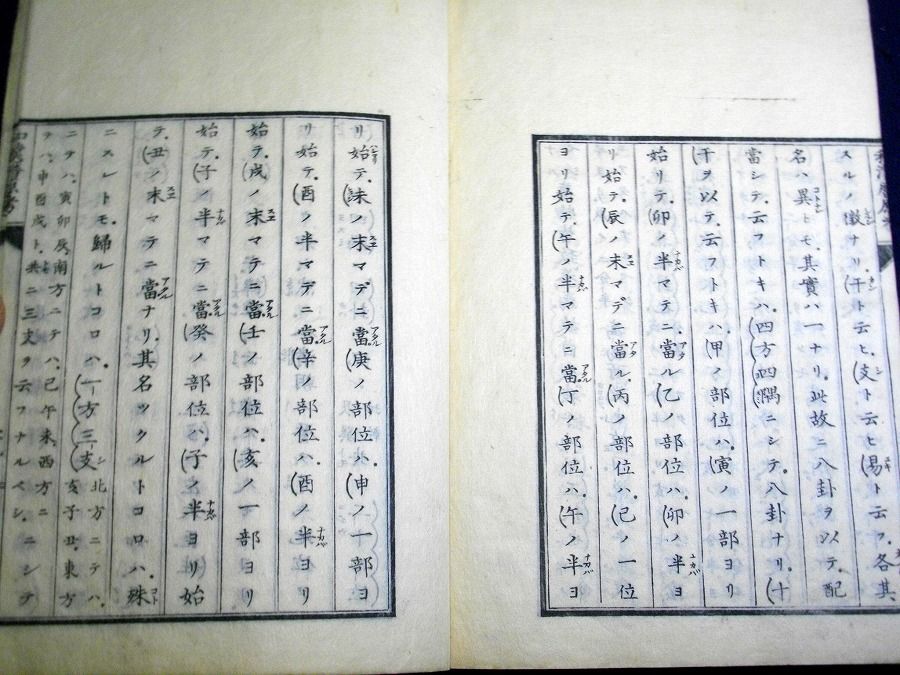 スルノ徴ナリ。干ト云ヒ、支ト云ヒ、易ト云フ。各其
名ハ異トモ、其實ハ一ナリ。此故ニ八卦ヲ以テ、配
當シテ、云フトキハ、四方四隅ニシテ、八卦ナリ。十
干ヲ以テ、云フトキハ、甲ノ部位ハ、寅ノ一部ヨリ
始リテ、卯ノ半マテニ、當ル乙ノ部位ハ、卯ノ半ヨ
リ始テ、辰ノ末マデニ當ル、丙ノ部位ハ、巳ノ一位
ヨリ始テ、午ノ半マテニ當、丁ノ部位ハ、午ノ半ヨ
リ始テ、未ノ末マデニ當、庚ノ部位ハ、申ノ一部ヨ
リ始テ、酉ノ半マデニ當、辛ノ部位ハ、酉ノ半ヨリ
始テ、戌ノ末マテニ當、壬ノ部位ハ、亥ノ一部ヨリ
始テ、子ノ半マテニ當、癸ノ部位ハ、子ノ半ヨリ始
テ、丑ノ末マテニ當ナリ。其名ツクルトコロハ、殊
ニスルトモ、歸ルトコロハ、一方三支、北方ニテハ、
ニテハ、寅卯辰、南方ニテハ、巳午未、西方ニ
亥子丑、東方
ヲハ、申酉戌ト、共ニ三支ヲ云フナルベシ、ニシテ